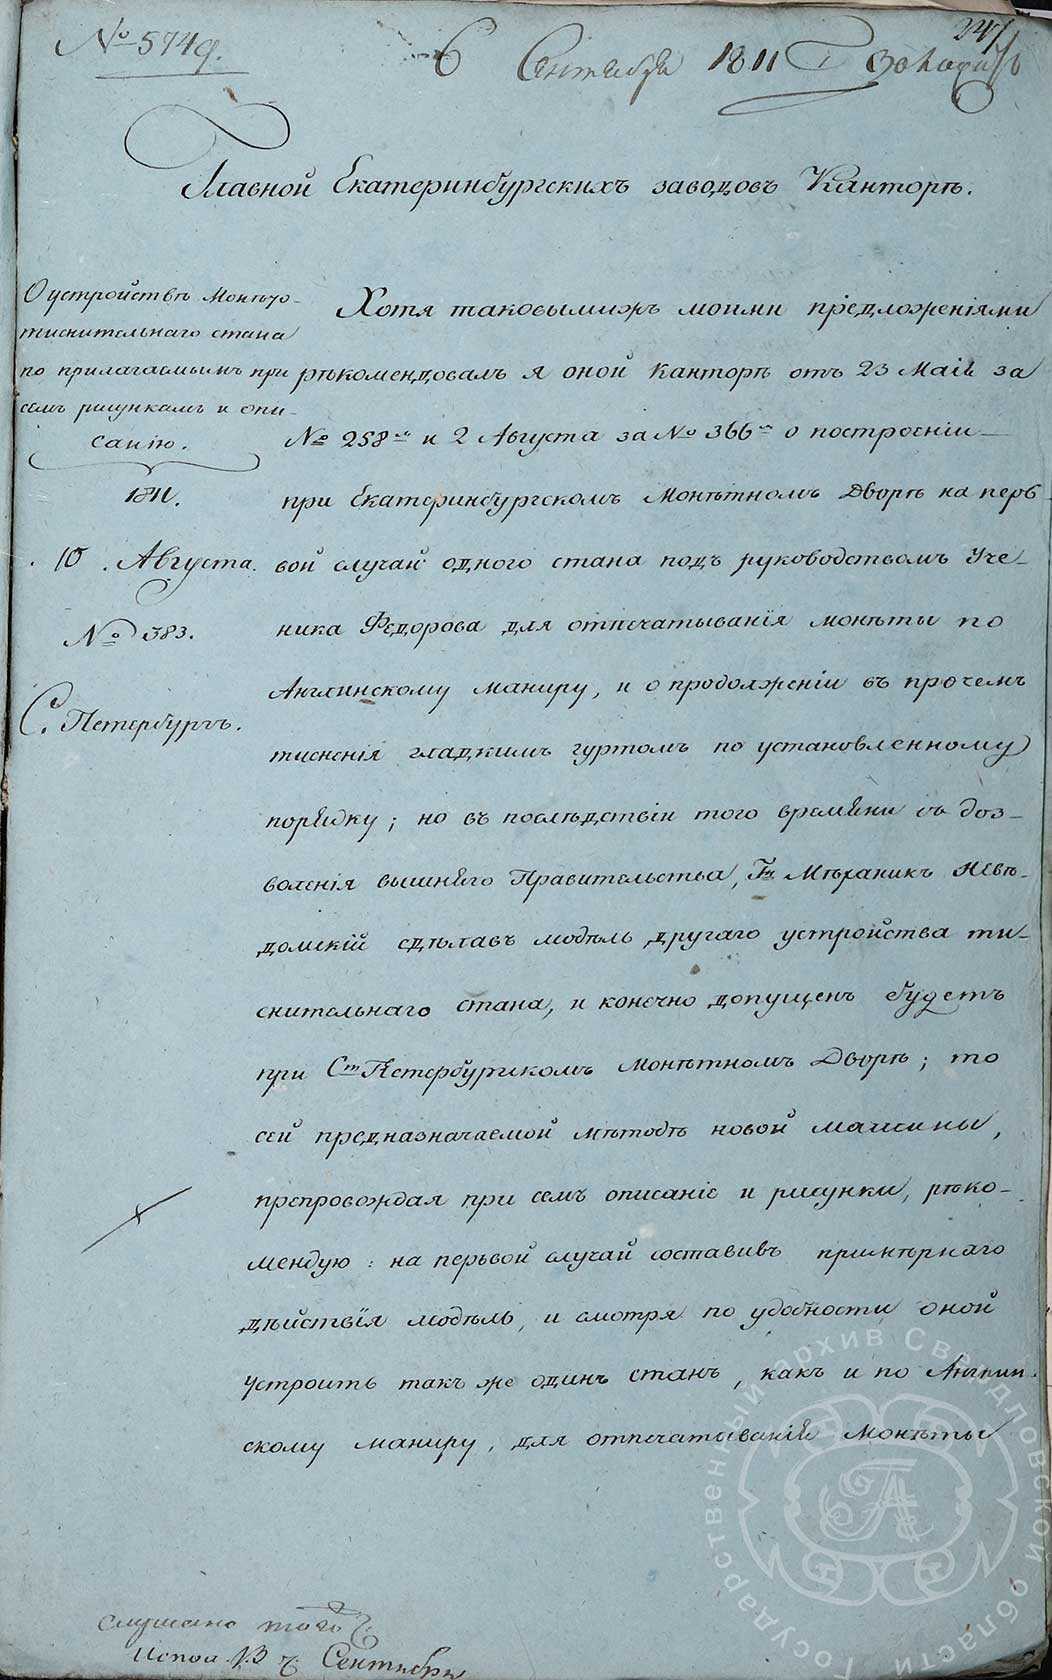 № 5749.
6 Сентября 1811
247
Главной Екатеринбургскихъ заводовъ Канторѣ.
О устройствѣ Монѣто-
тиснительнаго стана
по прилагаемымъ при
семъ рисункамъ и опи-
санію.
1811.
10 Августа.
№ 383.
С. Петербургъ.
Хотя таковымижъ моими предложеніями
рѣкомендовалъ я оной Канторѣ отъ 23 Маія за
№ 258 и 2 Августа за № 366 о построеніи
при Екатеринбургскомъ Монѣтномъ Дворѣ на перв-
вой случай одного стана подъ руководствомъ Уче-
ника Федорова для отпечатыванія монѣты по
Англинскому маниру, и о продолженіи въ прочемъ
тисненія гладкимъ гуртомъ по установленному
порядку; но въ послѣдствіи того времяни съ доз-
воленія вышняго Правительства, Гнъ Мѣханикъ Невѣ-
домскій сдѣлавъ модѣль другаго устройства ти-
снительнаго стана, и конечно допущенъ будетъ
при Ст Петербургскомъ Монѣтномъ Дворѣ; то
сей предназначаемой мѣтодѣ новой машины,
препровождая при семъ описаніе и рисунки, рѣко-
мендую: на перьвой случай составивъ примѣрнаго
дѣйствія модѣль, и смотря по удобности оной
устроить такъ же одинъ станъ, какъ и по Англин-
скому маниру, для отпечатыванія монѣты
слушано того ч.
Испол. 13 ч. Сентября
Государственный архив Свердловской области
ГА